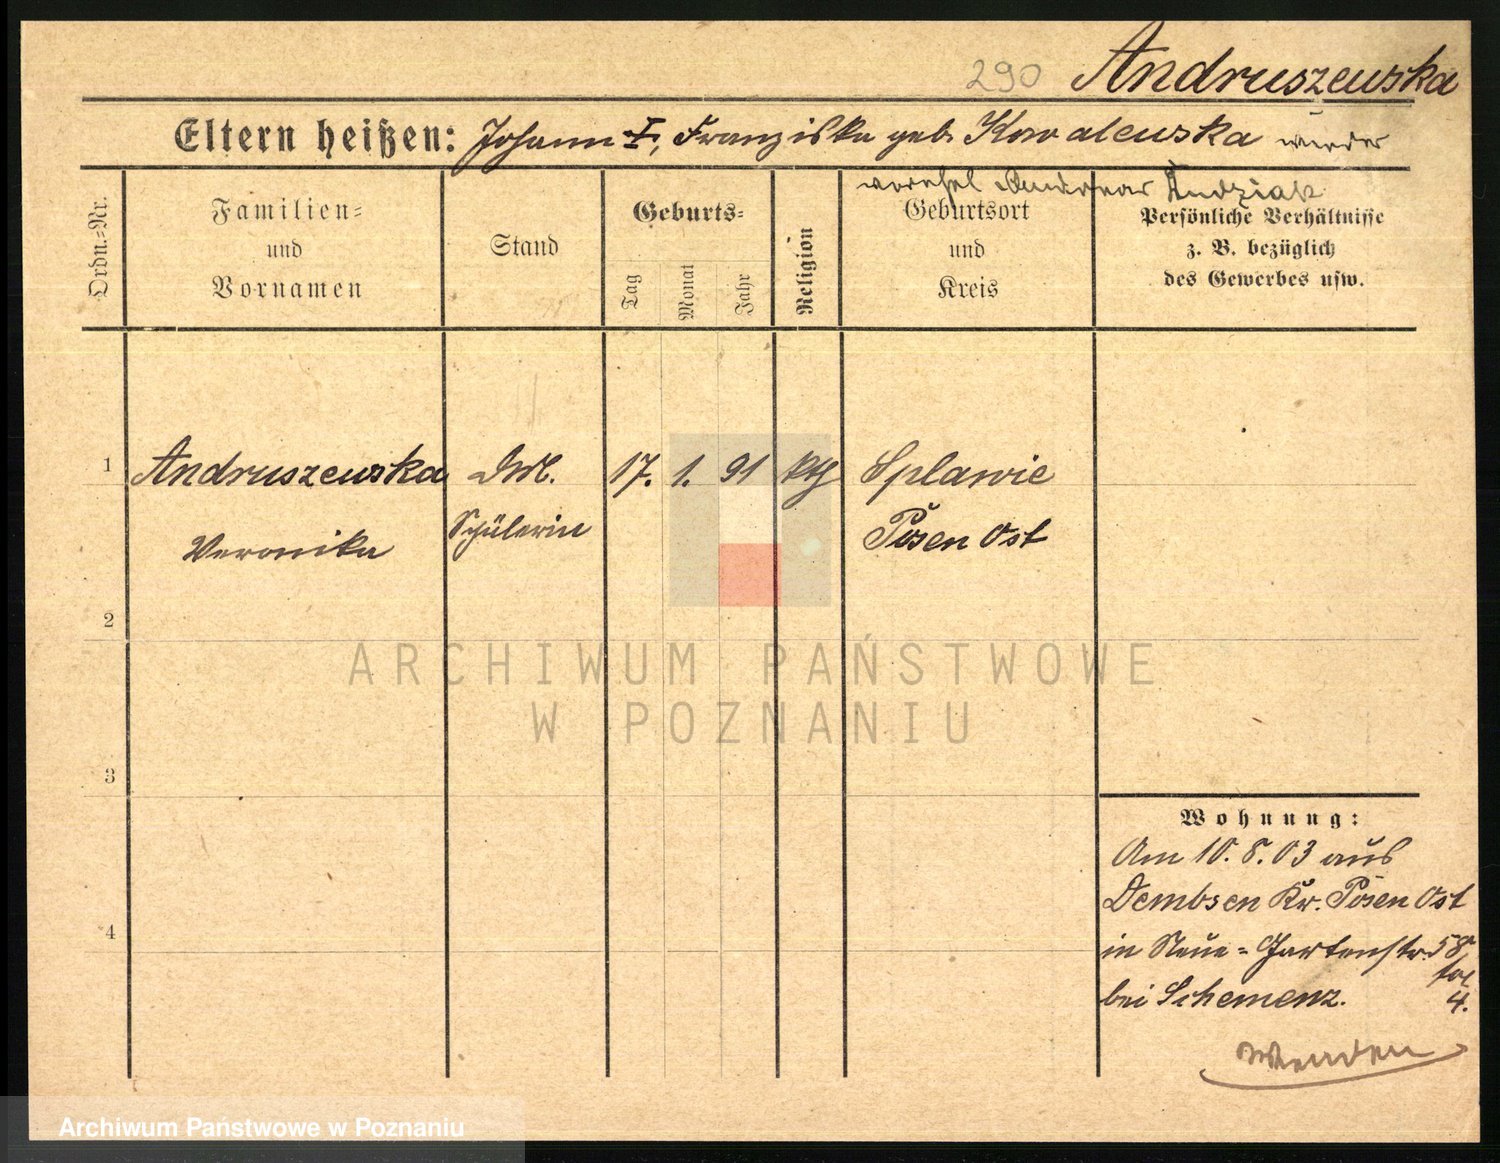 290 Andruszewska
Eltern heißen: Johann †, Franziska geb. Kowalewska wieder
verehel. Andreas Andziak
Ordn.-Nr.
Familien-
und
Vornamen
Stand
Geburts-
Tag
Monat
Jahr
Religion
Geburtsort
und
Kreis
Persönliche Verhältnisse
z. B. bezüglich
des Gewerbes usw.
1 Andruszewska 17. 1. 91 kth Splawie
Veronika Schülerin Posen Ost
2
3
4
Wohnung:
Am 10. 8. 03 aus
Dembsen Kr. Posen Ost
in Neue-Gartenstr. 58,
bei Schemenz. 4.
Wenden
ARCHIWUM PAŃSTWOWE
W POZNANIU
Archiwum Państwowe w Poznaniu